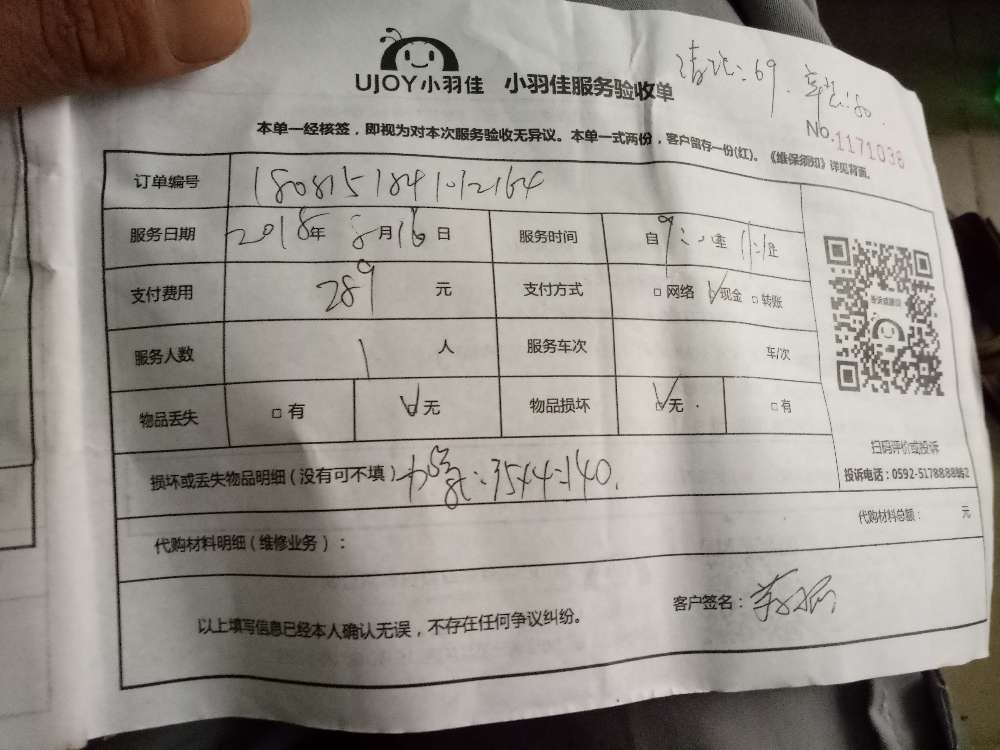 UJOY小羽佳 小羽佳服务验收单
清洗:69.
No.1171036
本单一经核签，即视为对本次服务验收无异议。本单一式两份，客户留存一份(红)。《维保须知》详见背面。
订单编号 1808151841012164
服务日期 2018年8月16日 服务时间 自9: 至11:
支付费用 289元 支付方式 □网络 ☑现金 □转账
服务人数 1人 服务车次 车/次
物品丢失 □有 ☑无 物品损坏 ☑无 □有
损坏或丢失物品明细（没有可不填） :35×4=140.
代购材料明细（维修业务）: 代购材料总额: 元
以上填写信息已经本人确认无误，不存在任何争议纠纷。 客户签名:
投诉或建议
扫码评价或投诉
投诉电话:0592-5178888转2